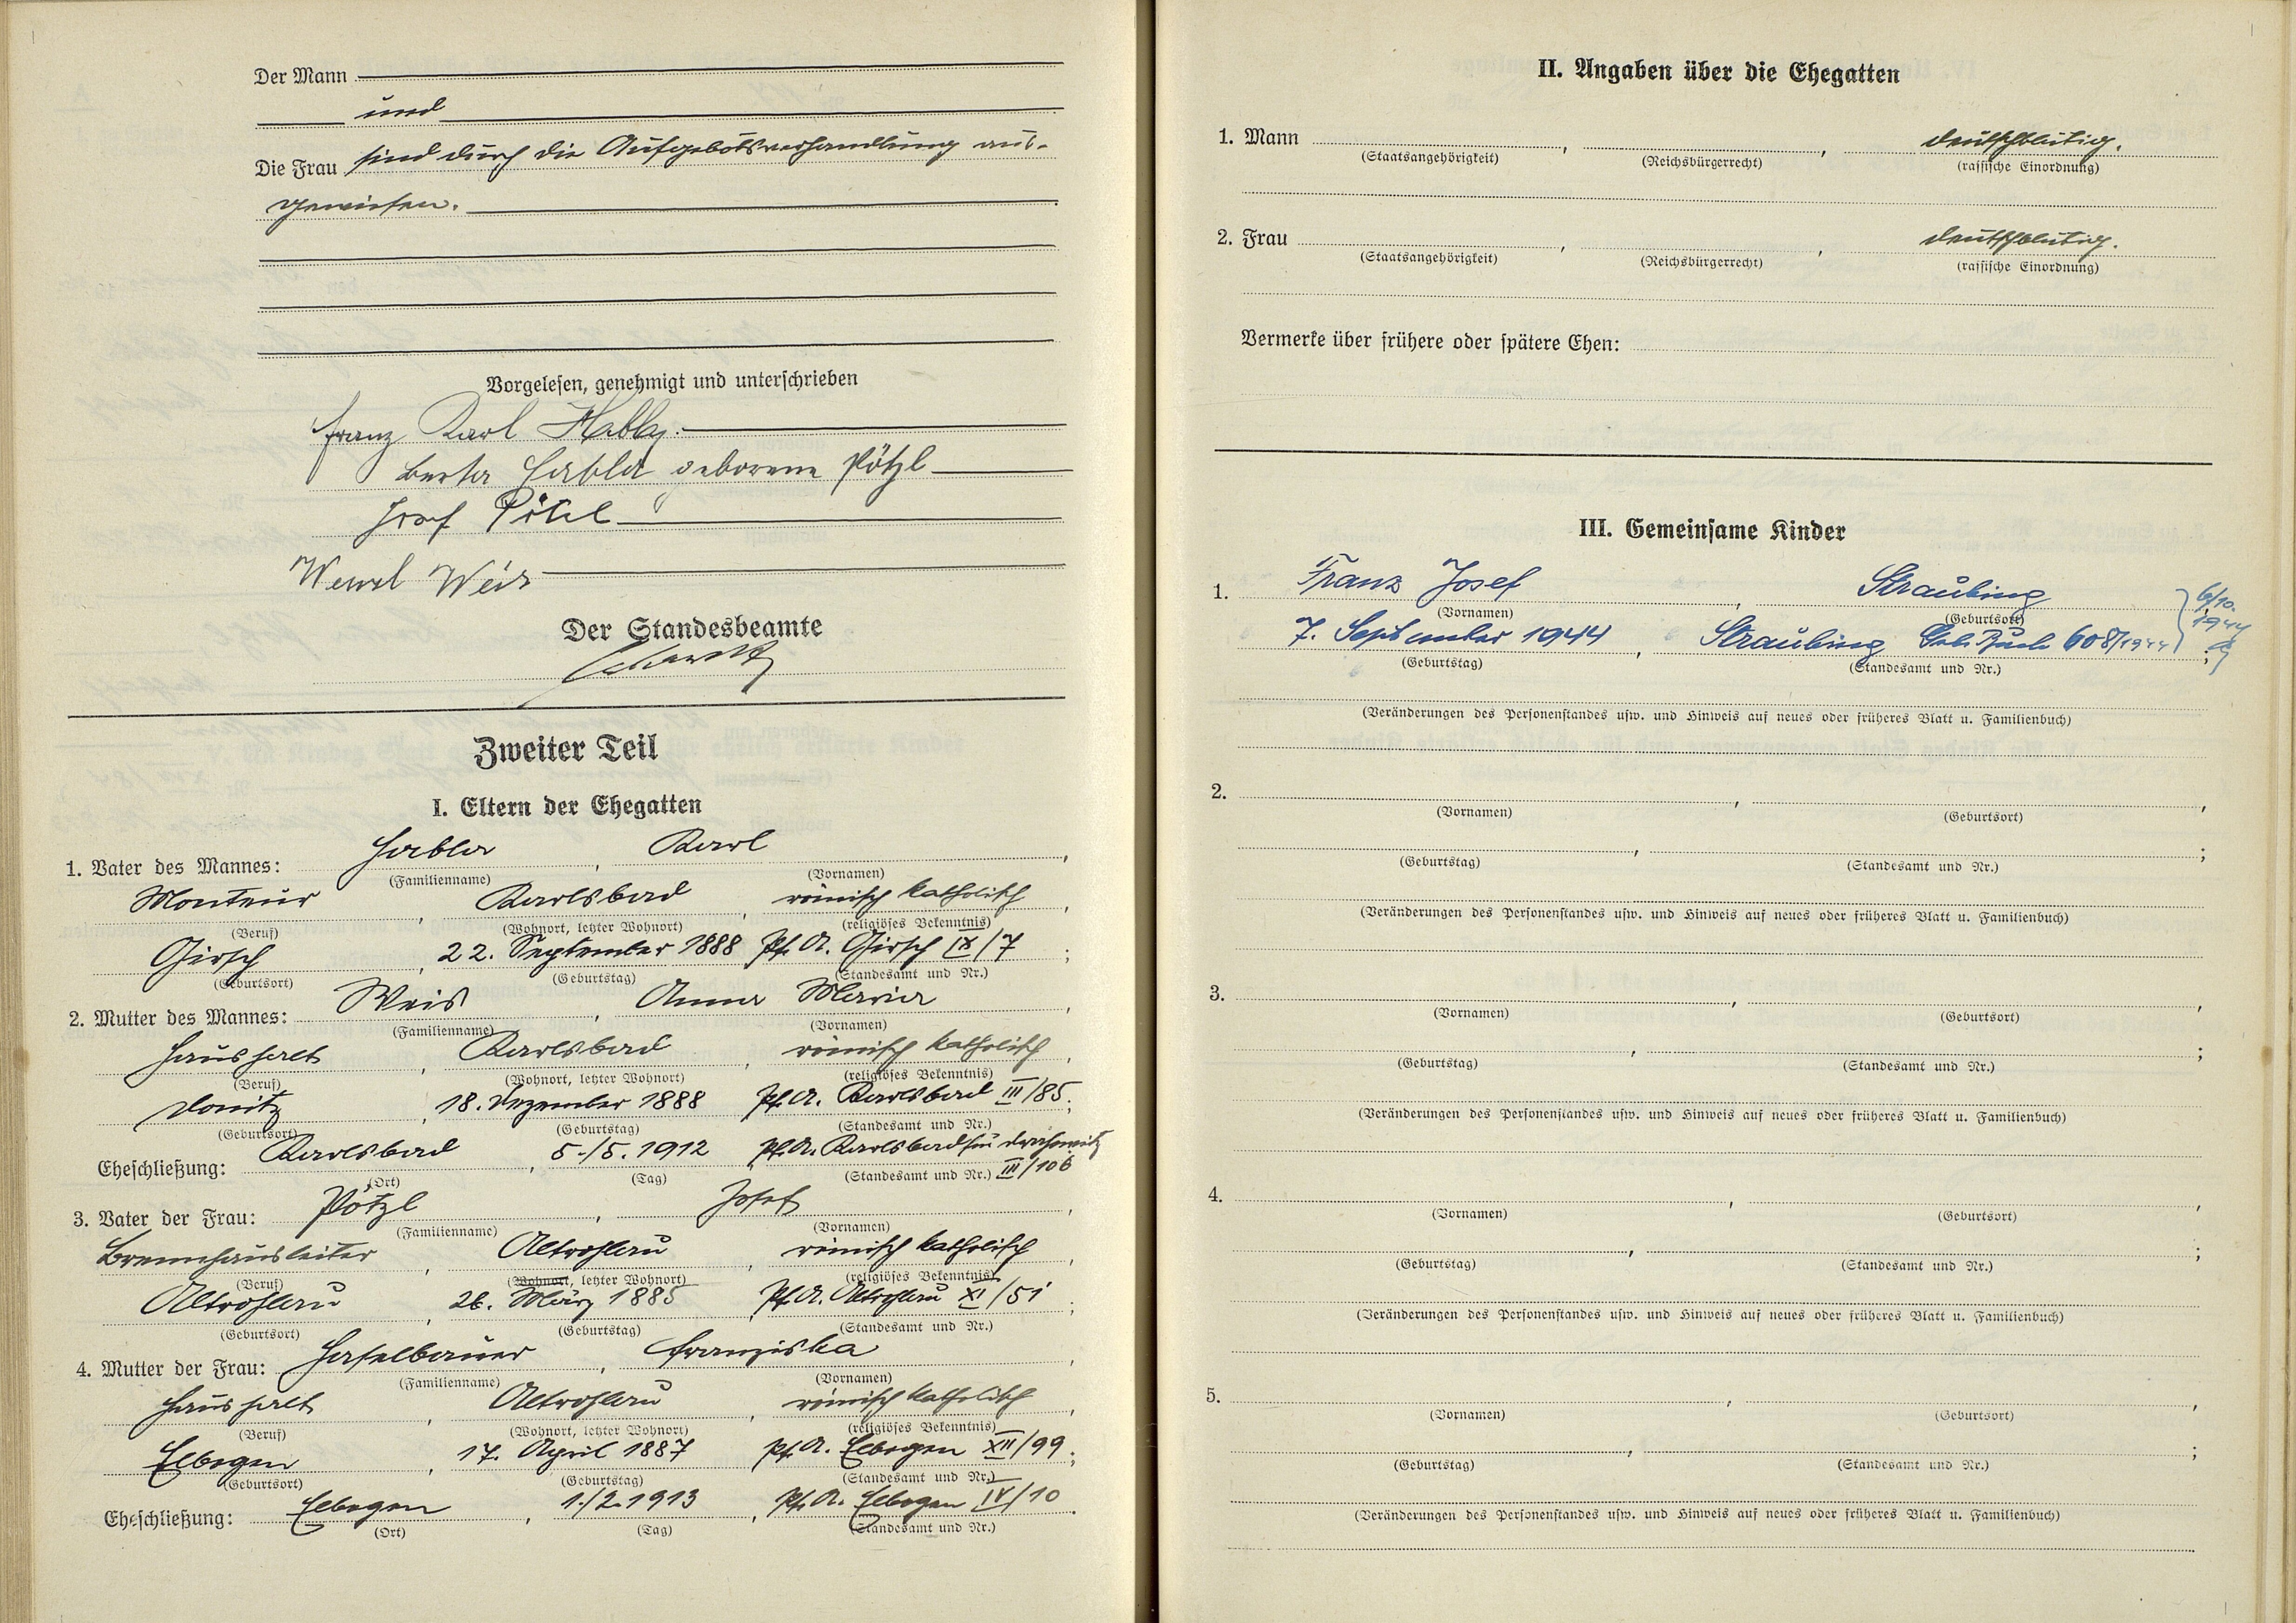 Der Mann
und
Die Frau sind durch die Aufgebotsverhandlung aus-
gewiesen.
Vorgelesen, genehmigt und unterschrieben
Franz Karl Habla.
Berta Habla geborene Pötzl
Josef Pötzl
Wenzl Weis
Der Standesbeamte
Zweiter Teil
I. Eltern der Ehegatten
1. Vater des Mannes: Habla, Karl,
(Familienname) (Vornamen)
Monteur, Karlsbad, römisch katholisch,
(Beruf) (Wohnort, letzter Wohnort) (religiöses Bekenntnis)
Girsch, 22. September 1888 Pf. A. Girsch IX/7;
(Geburtsort) (Geburtstag) (Standesamt und Nr.)
2. Mutter des Mannes: Weis, Anna Maria,
(Familienname) (Vornamen)
Haushalt, Karlsbad, römisch katholisch,
(Beruf) (Wohnort, letzter Wohnort) (religiöses Bekenntnis)
Donitz, 18. Dezember 1888 Pf. A. Karlsbad III/85;
(Geburtsort) (Geburtstag) (Standesamt und Nr.)
Eheschließung: Karlsbad, 5./5. 1912, Pf. A. Karlsbad für Drahowitz
(Ort) (Tag) (Standesamt und Nr.) III/106
3. Vater der Frau: Pötzl, Josef,
(Familienname) (Vornamen)
Brennhausleiter, Altrohlau, römisch katholisch,
(Beruf) (Wohnort, letzter Wohnort) (religiöses Bekenntnis)
Altrohlau, 26. März 1885, Pf. A. Altrohlau XI/51;
(Geburtsort) (Geburtstag) (Standesamt und Nr.)
4. Mutter der Frau: Haselbauer, Franziska,
(Familienname) (Vornamen)
Haushalt, Altrohlau, römisch katholisch,
(Beruf) (Wohnort, letzter Wohnort) (religiöses Bekenntnis)
Elbogen, 17. April 1887, Pf. A. Elbogen XII/99;
(Geburtsort) (Geburtstag) (Standesamt und Nr.)
Eheschließung: Elbogen, 1./2. 1913, Pf. A. Elbogen IV/10.
(Ort) (Tag) (Standesamt und Nr.)
II. Angaben über die Ehegatten
1. Mann, , deutschblütig.
(Staatsangehörigkeit) (Reichsbürgerrecht) (rassische Einordnung)
2. Frau, , deutschblütig.
(Staatsangehörigkeit) (Reichsbürgerrecht) (rassische Einordnung)
Vermerke über frühere oder spätere Ehen:
III. Gemeinsame Kinder
1. Franz Josef, Straubing, 6/10.
(Vornamen) (Geburtsort) 1944
7. September 1944, Straubing Geb. Buch 608/1944;
(Geburtstag) (Standesamt und Nr.)
(Veränderungen des Personenstandes usw. und Hinweis auf neues oder früheres Blatt u. Familienbuch)
2. , ,
(Vornamen) (Geburtsort)
, ;
(Geburtstag) (Standesamt und Nr.)
(Veränderungen des Personenstandes usw. und Hinweis auf neues oder früheres Blatt u. Familienbuch)
3. , ,
(Vornamen) (Geburtsort)
, ;
(Geburtstag) (Standesamt und Nr.)
(Veränderungen des Personenstandes usw. und Hinweis auf neues oder früheres Blatt u. Familienbuch)
4. , ,
(Vornamen) (Geburtsort)
, ;
(Geburtstag) (Standesamt und Nr.)
(Veränderungen des Personenstandes usw. und Hinweis auf neues oder früheres Blatt u. Familienbuch)
5. , ,
(Vornamen) (Geburtsort)
, ;
(Geburtstag) (Standesamt und Nr.)
(Veränderungen des Personenstandes usw. und Hinweis auf neues oder früheres Blatt u. Familienbuch)